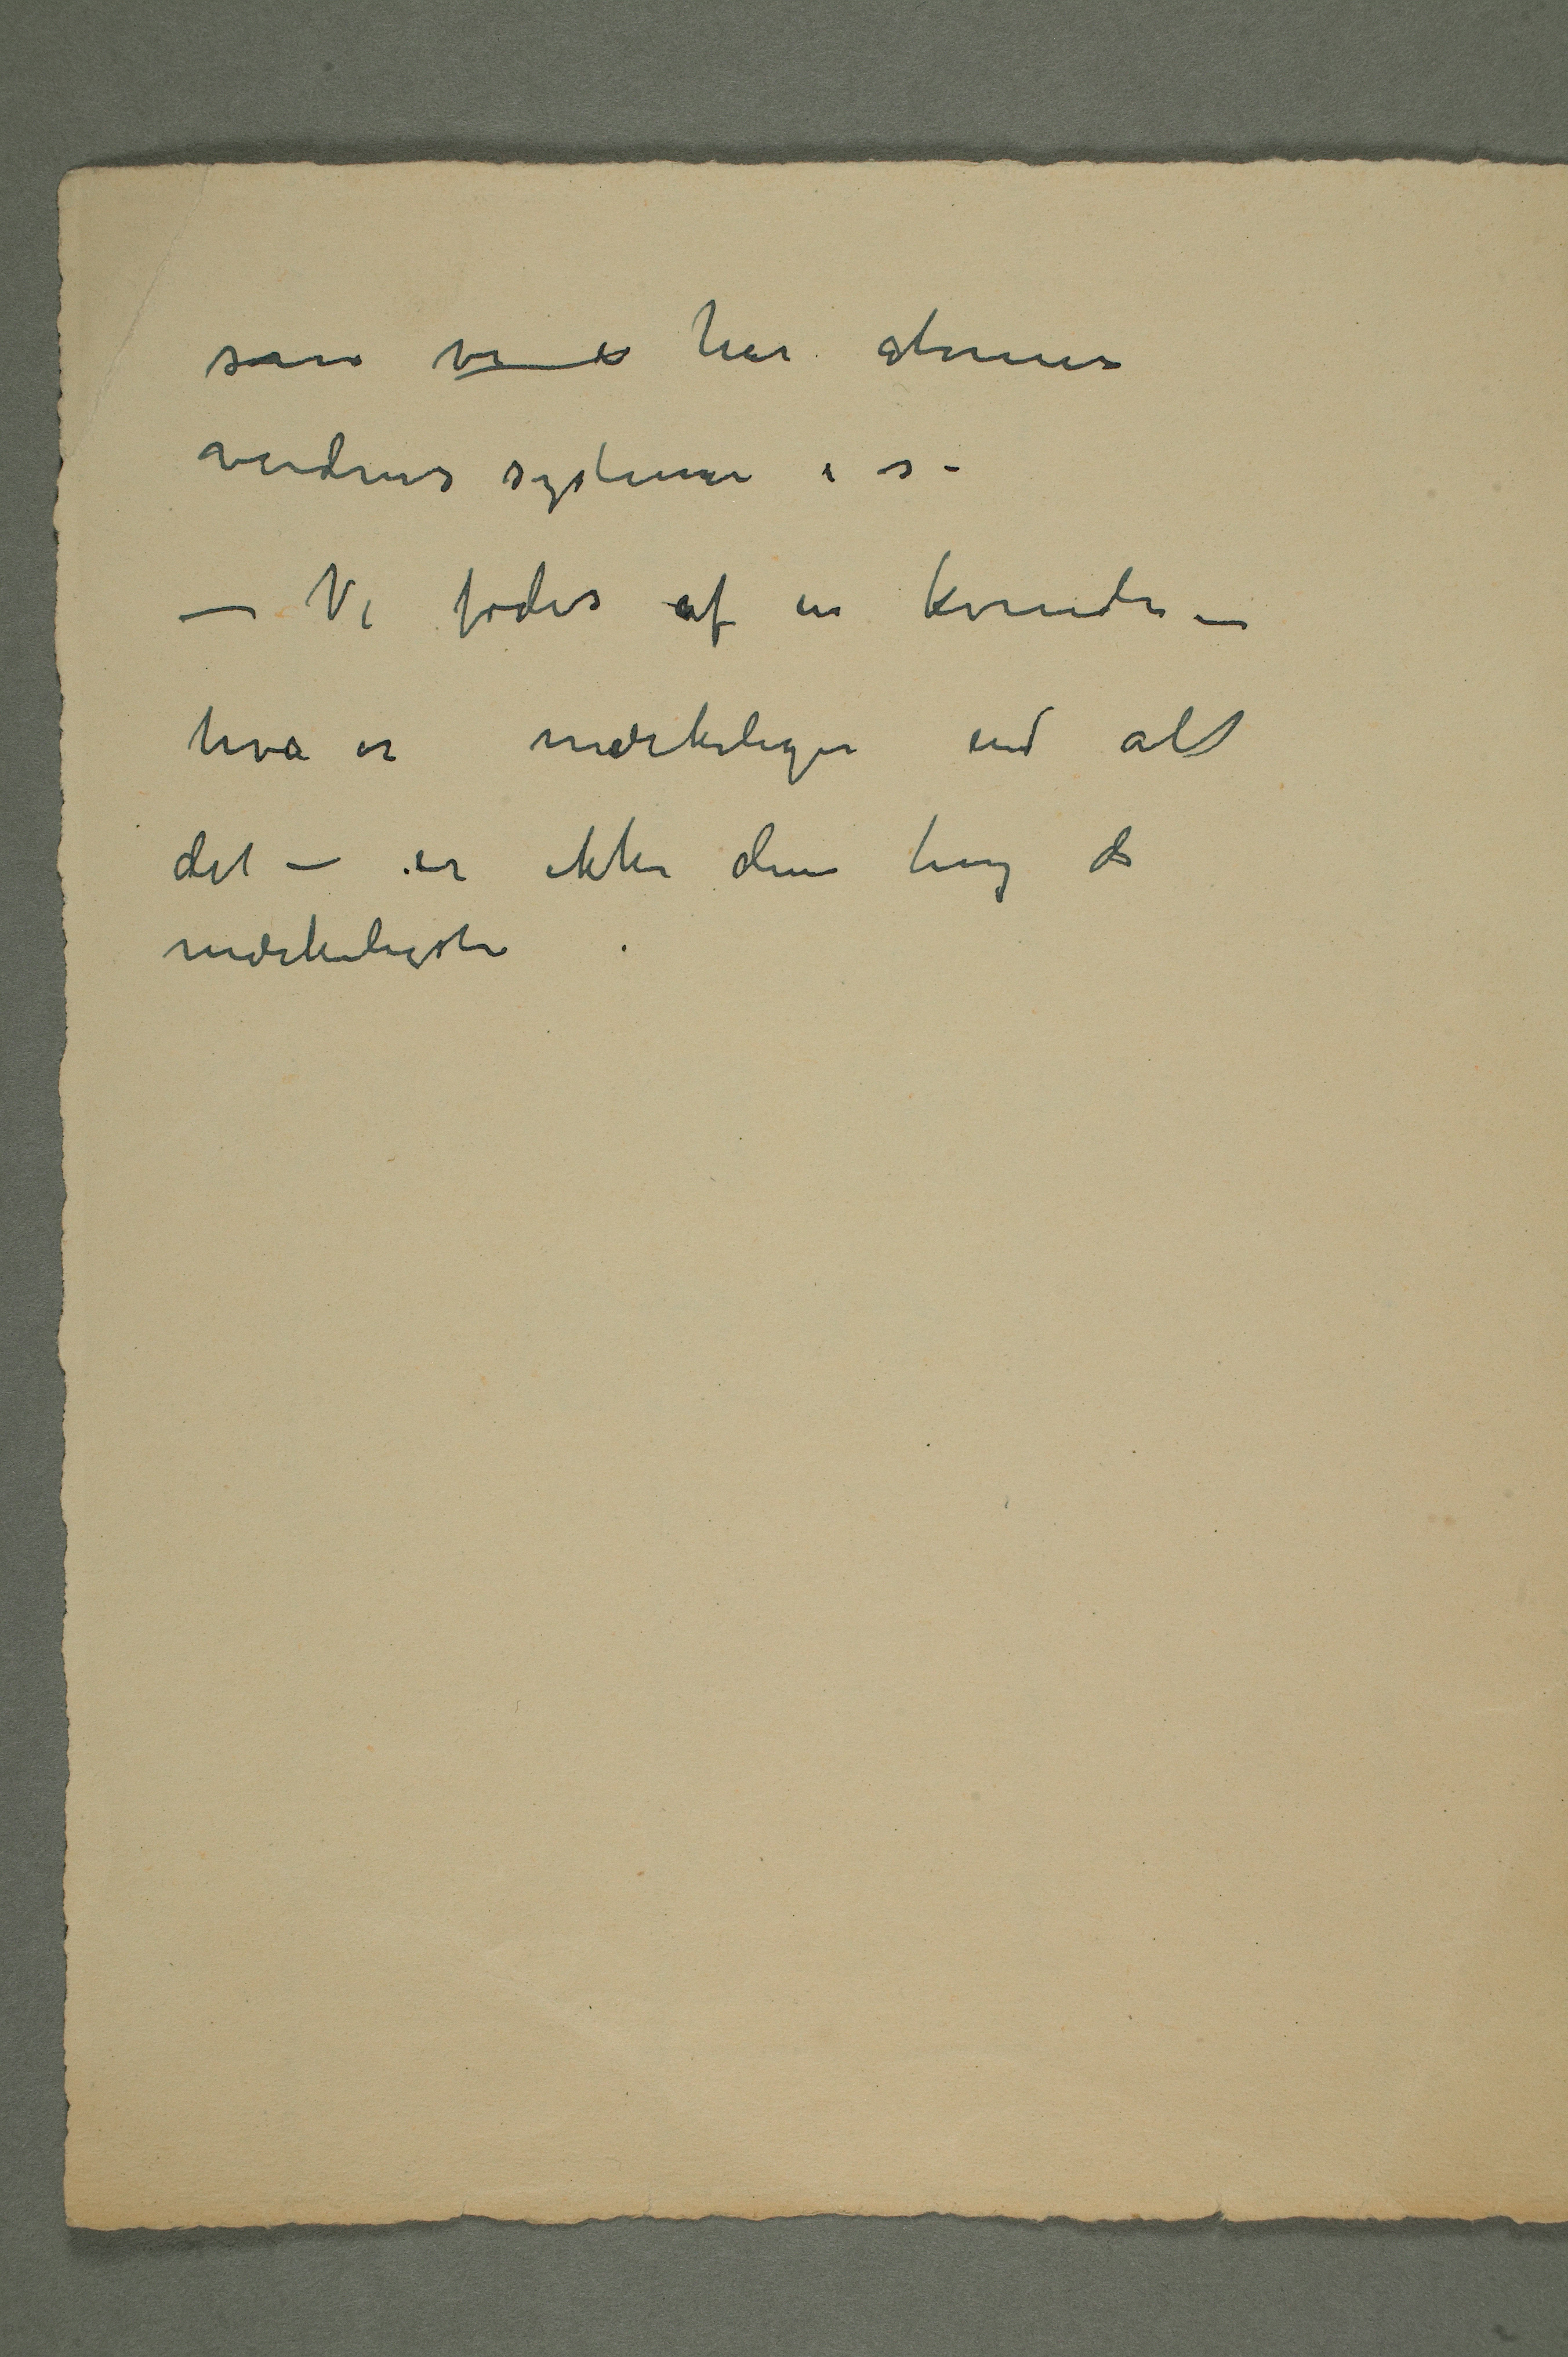 som har atomer
verdens systemer i s –
– Vi fødes af en kvinde –
hva er mærkeliger end alt
det – er ikke denne ting de
mærkeligste .